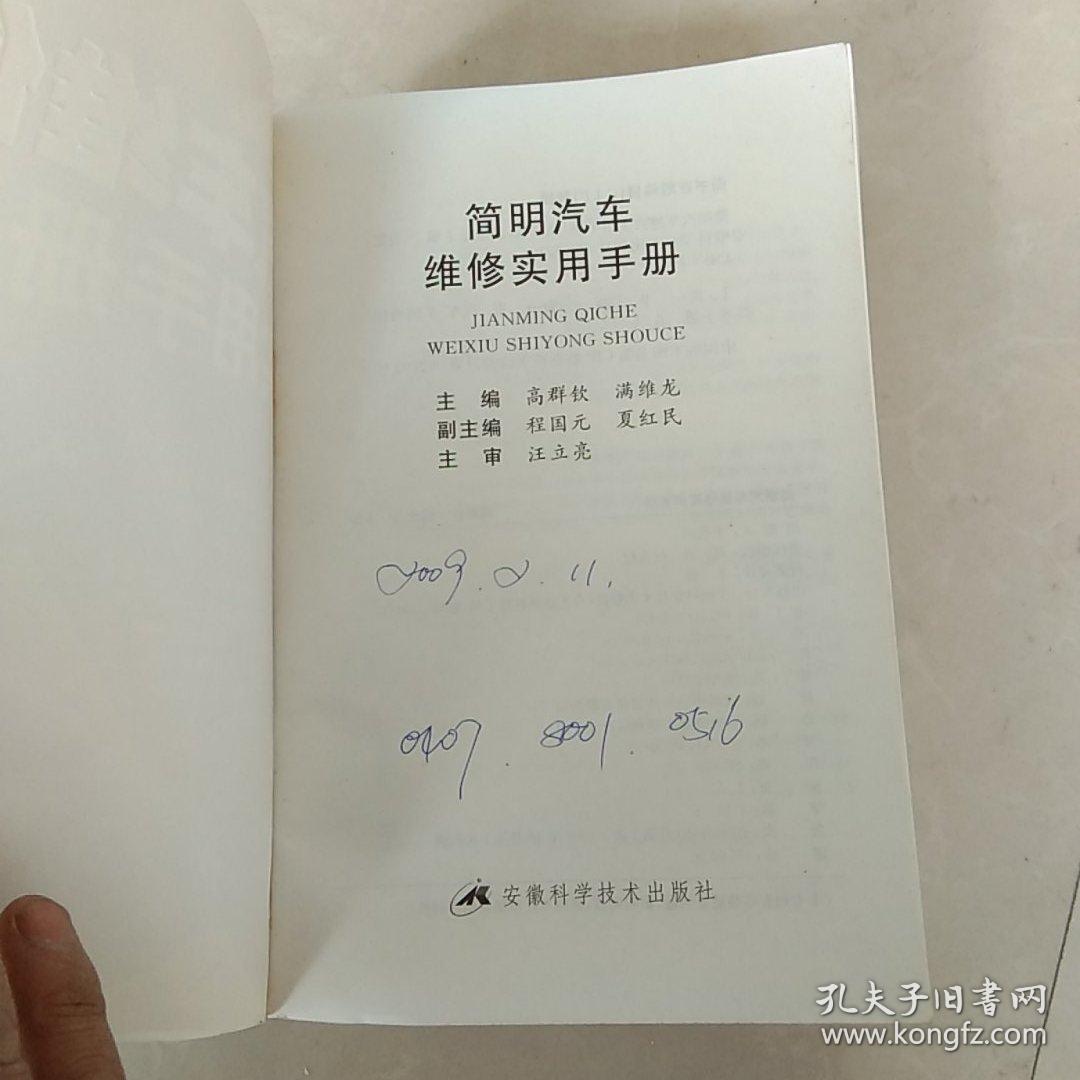 简明汽车
维修实用手册
JIANMING QICHE
WEIXIU SHIYONG SHOUCE
主 编 高群钦 满维龙
副主编 程国元 夏红民
主 审 汪立亮
2009.2.11.
0407.8001.0516
安徽科学技术出版社
孔夫子旧书网
www.kongfz.com